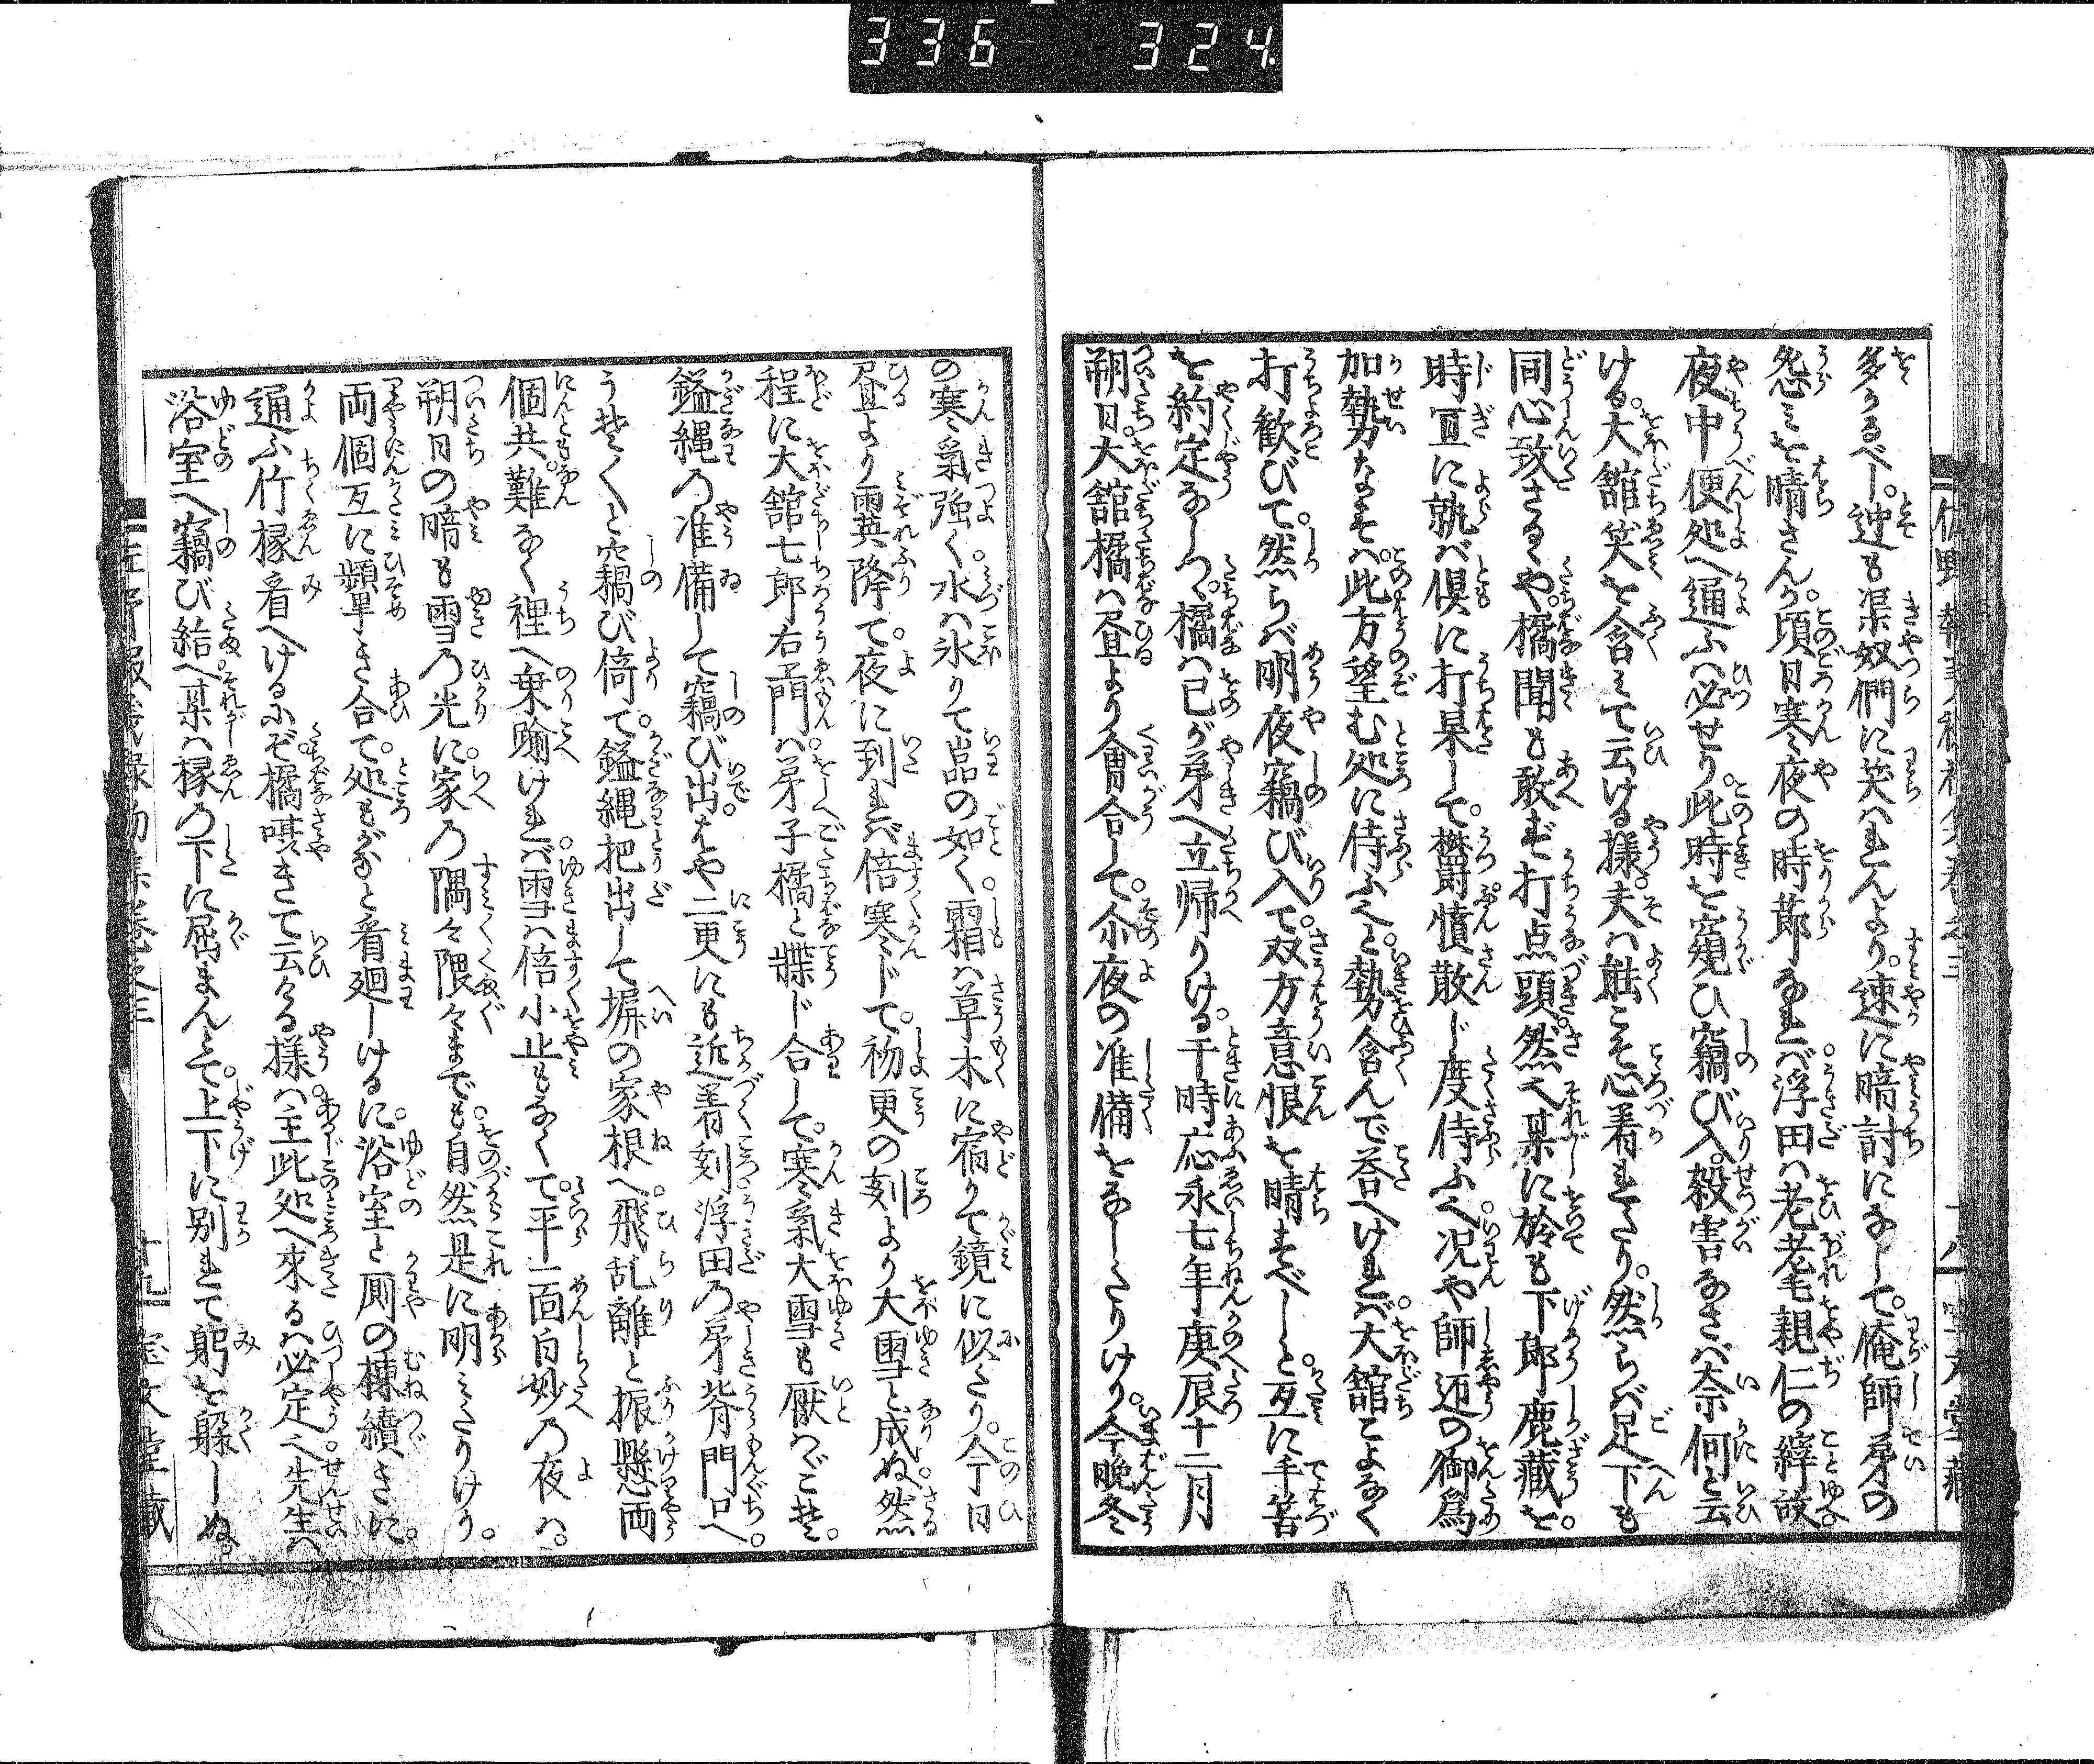 336 324.
多かるべし。迚も渠奴們に笑はれんより。速に暗討になして。俺師弟の
怨ミを晴さんが。頃日寒夜の時節なれバ浮田ハ老耄親仁の縡故
夜中便処へ通ふハ必せり。此時を窺ひ竊び入。殺害なさバ奈何と云
ける。大舘笑を含ミて云ける樣夫ハ能こそ心着れたり。然らバ足下も
同心致さるゝや。橘聞も敢ず打点頭然ハ某に於も下郎鹿藏を。
時宜に執バ倶に打果して。欝憤散じ度侍ふ。况や師迊の御爲
加勢なさバ。此方望む処に侍ふと。勢含んで答へけれバ。大舘こよなく
打歓びて。然らバ明夜竊び入て。双方意恨を晴すべしと。互に手筈
を約定なしつ。橘ハ己が弟へ立帰りける。于時応永七年庚辰十二月
朔日。大舘橘ハ昼より會合して。尒夜の准備をなしたりけり。今晚冬
の寒氣強く。水ハ氷りて嵓の如く。霜ハ草木に宿りて鏡に似たり。今日
昼より霙降て。夜に到れバ倍寒じて。初更の刻より大雪と成ぬ。然
程に大舘七郎右エ門ハ。弟子橘と牒じ合して。寒氣大雪も厭ハゞこそ。
鎰縄の准備して竊び出。はや二更にも近着刻浮田の弟背門口へ。
うそ〱と竊び倚て。鎰縄把出して塀の家根へ。飛乱離と振懸両
個共。難なく裡へ乗踰けれバ。雪ハ倍小止もなくて。平一面白妙の夜ハ。
朔日の暗も雪の光に。家の隅々隈々までも。自然是に明ミたりけり。
両個互に顰き合て。処もがなと看廻しけるに。浴室と厠の棟續きに。
通ふ竹椽看へけるにぞ。橘㗳きて云ける様ハ。主此処へ來るハ必定。先生ハ
浴室へ竊び給へ。某ハ椽の下に屈まんとて。上下に別れて躬を躱しぬ。
十九 宝文堂藏